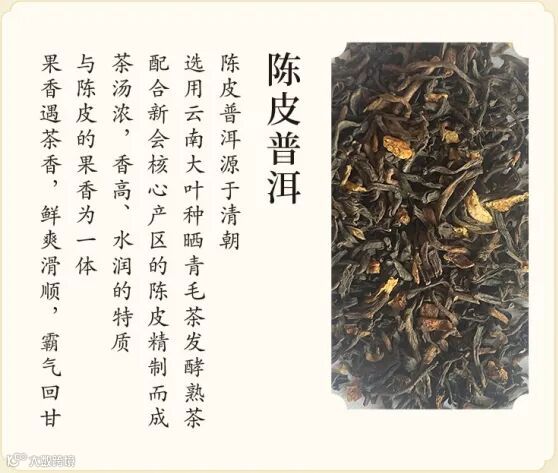 陈皮普洱
陈皮普洱源于清朝
选用云南大叶种晒青毛茶发酵熟茶
配合新会核心产区的陈皮精制而成
茶汤浓，香高、水润的特质
与陈皮的果香为一体
果香遇茶香，鲜爽滑顺，霸气回甘
大数跨境